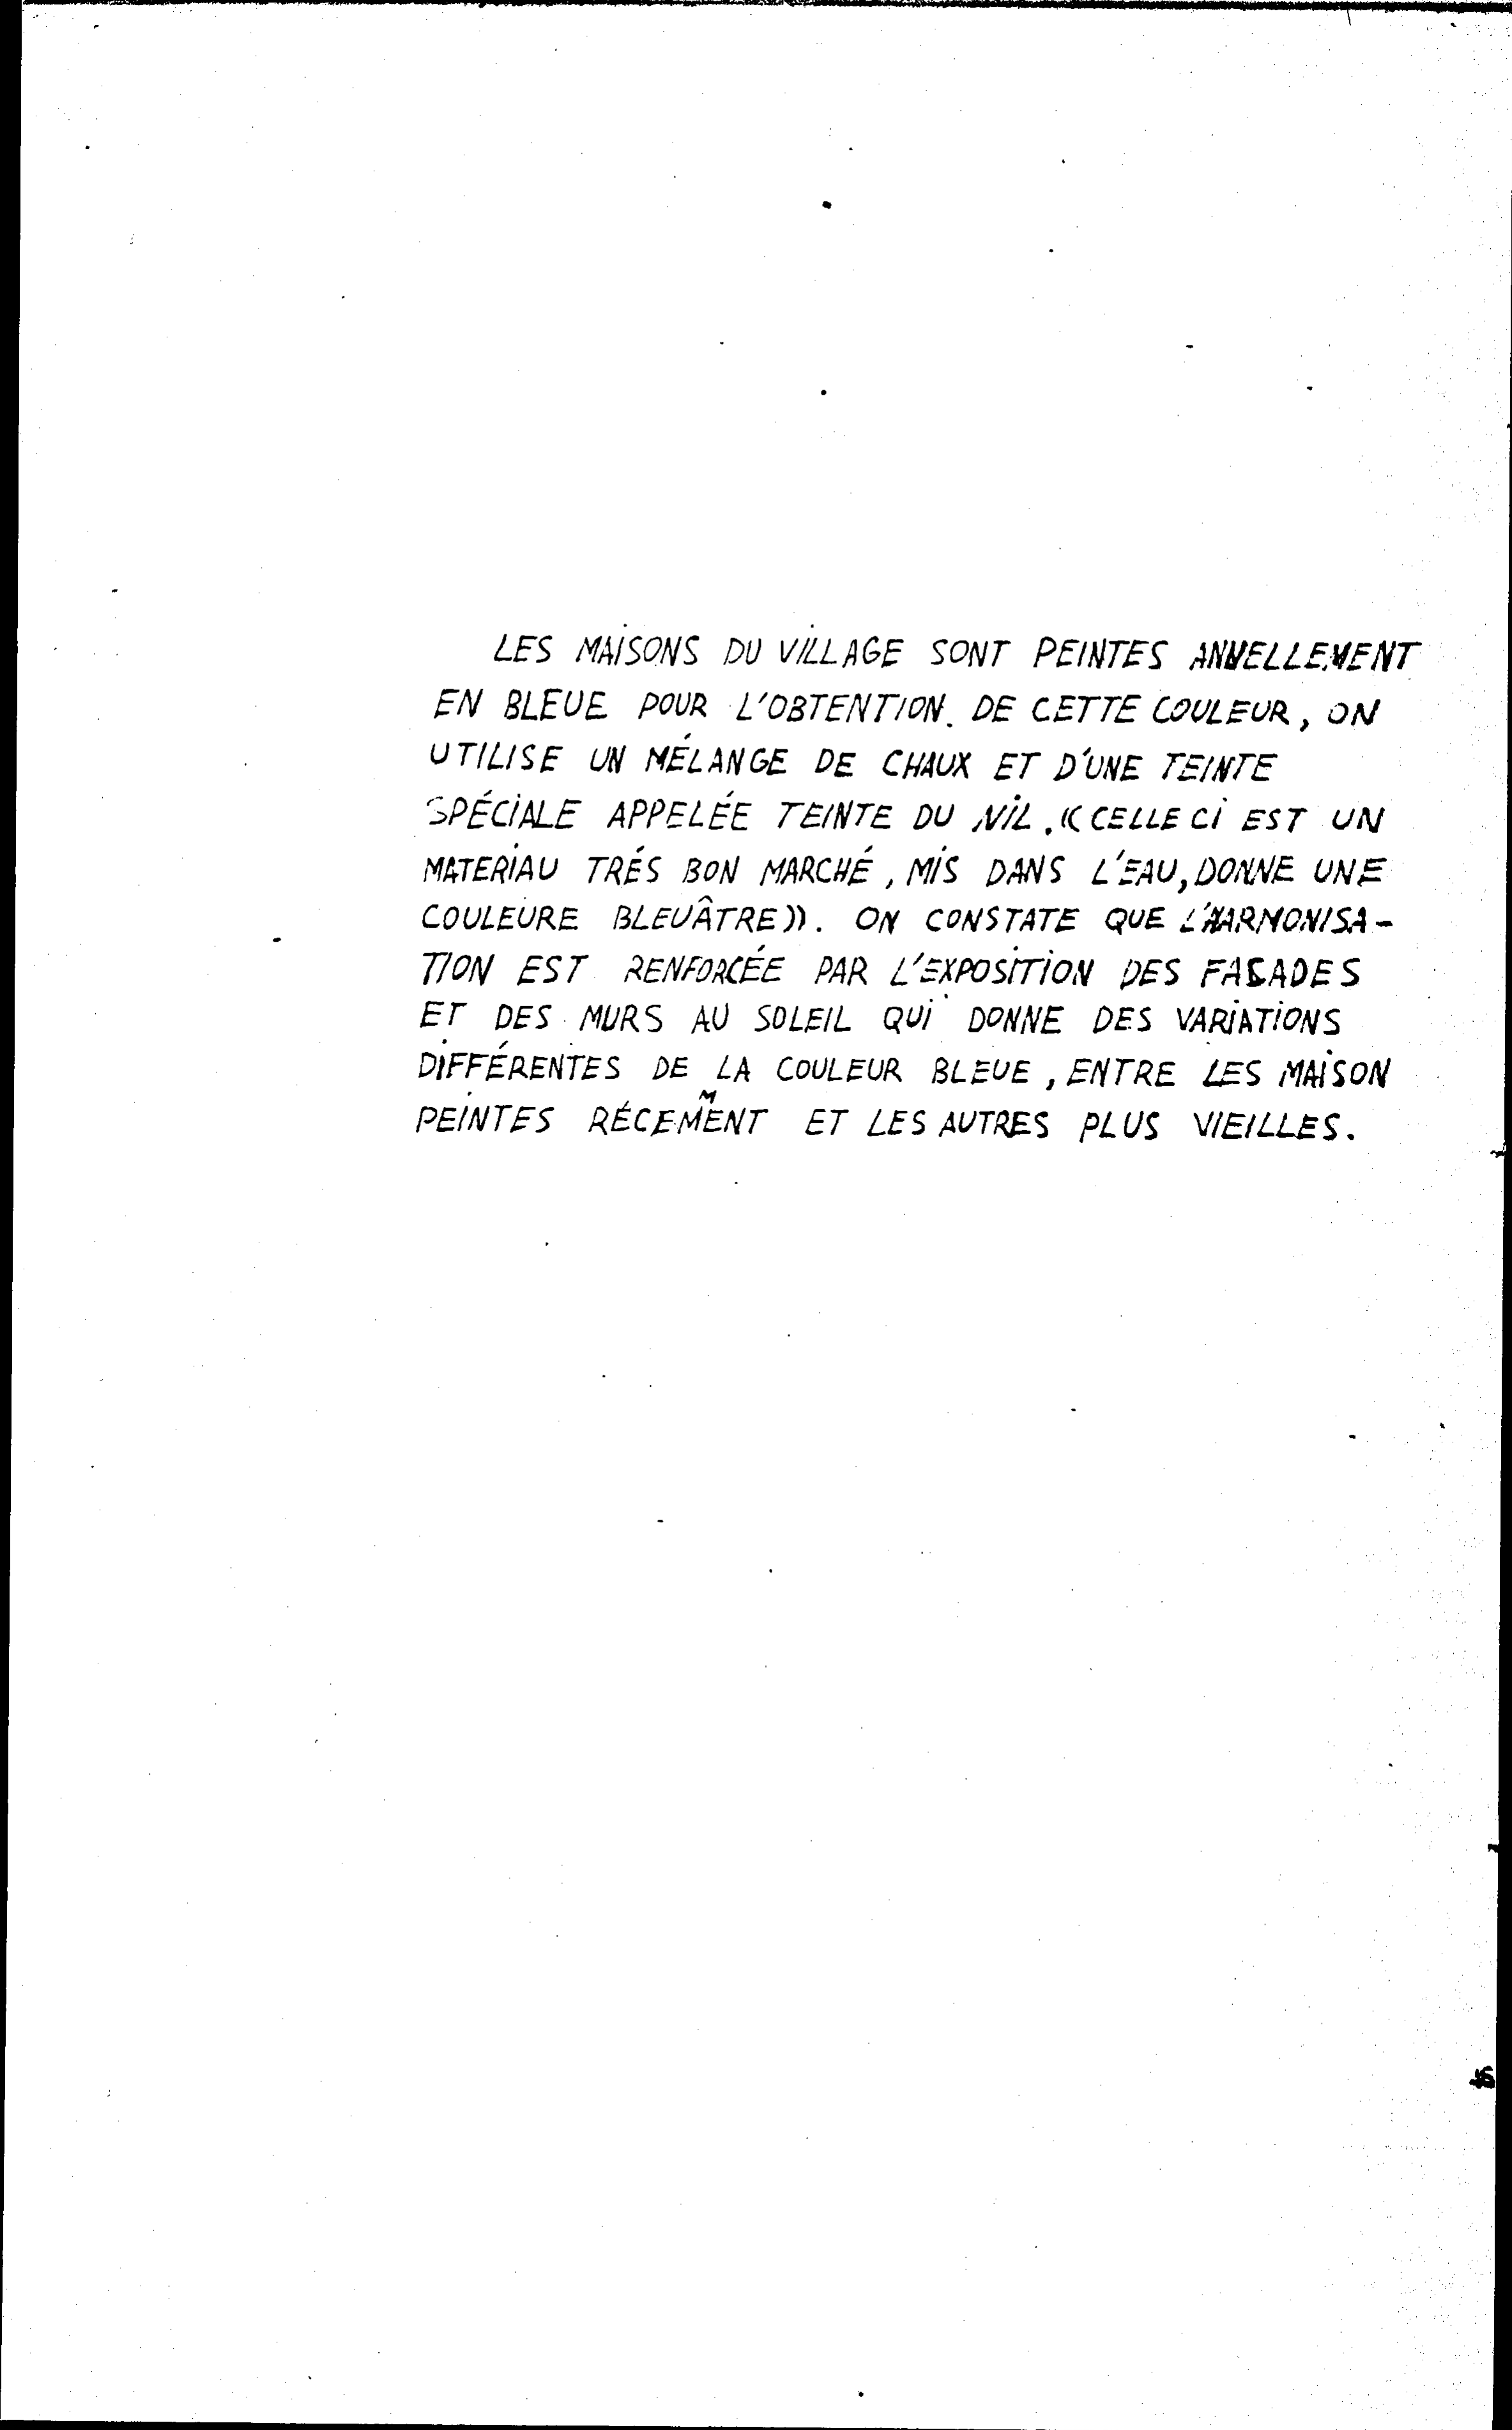 LES MAISONS DU VILLAGE SONT PEINTES ANNUELLEMENT
EN BLEUE POUR L'OBTENTION DE CETTE COULEUR, ON
UTILISE UN MÉLANGE DE CHAUX ET D'UNE TEINTE
SPÉCIALE APPELÉE TEINTE DU NIL. ((CELLE CI EST UN
MATERIAU TRÉS BON MARCHÉ, MIS DANS L'EAU, DONNE UNE
COULEURE BLEUÂTRE)). ON CONSTATE QUE L'HARMONISA-
TION EST RENFORCÉE PAR L'EXPOSITION DES FACADES
ET DES MURS AU SOLEIL QUI DONNE DES VARIATIONS
DIFFÉRENTES DE LA COULEUR BLEUE, ENTRE LES MAISON
PEINTES RÉCEMMENT ET LES AUTRES PLUS VIEILLES.